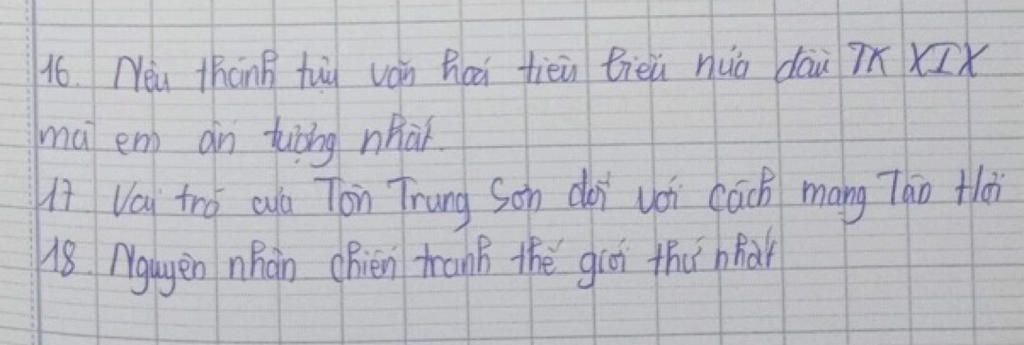 16. Nêu thành tựu văn hoá tiêu biểu nửa đầu TK XIX
mà em ấn tượng nhất.
17 Vai trò của Tôn Trung Sơn đối với cách mạng Tân Hợi
18. Nguyên nhân chiến tranh thế giới thứ nhất